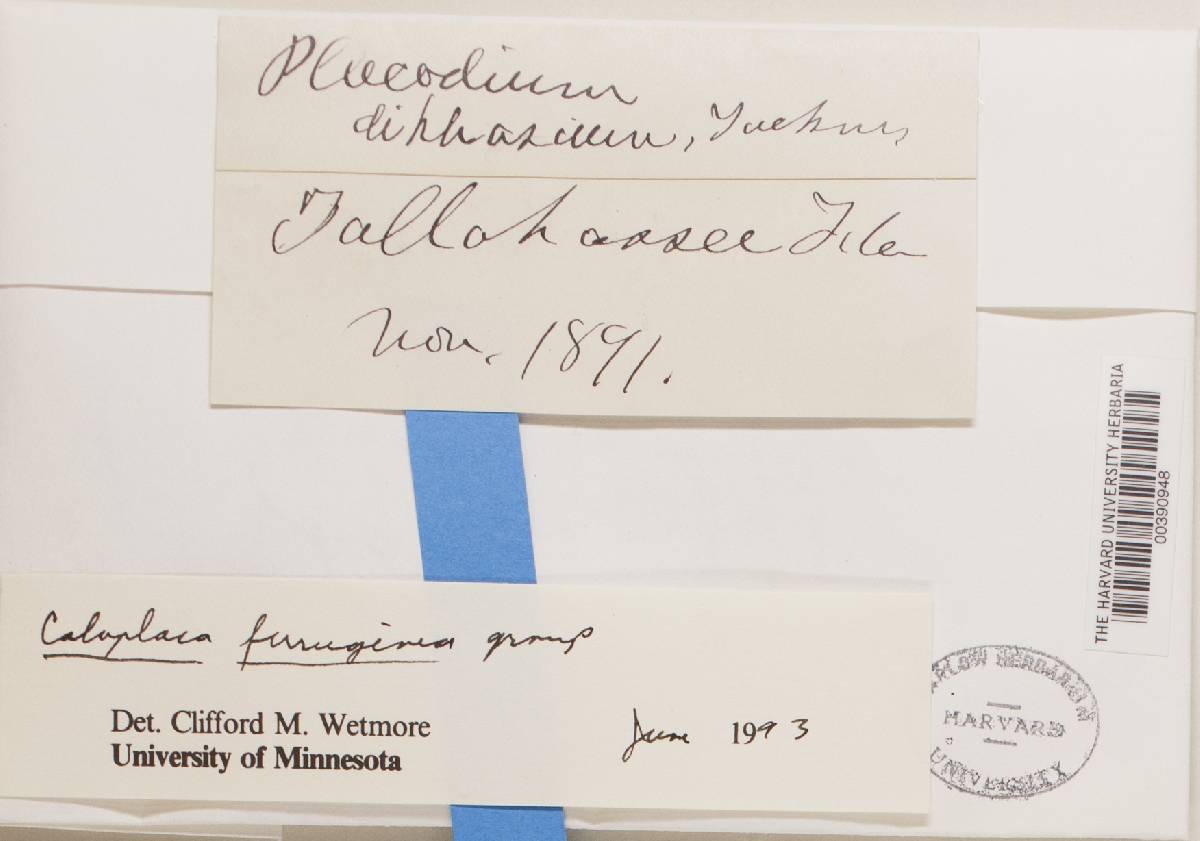 Placodium
diphasium, Tuckm,
Tallahassee Fla
Nov. 1891.
THE HARVARD UNIVERSITY HERBARIA
00390948
Caloplaca ferruginea group
Det. Clifford M. Wetmore
June 1993
University of Minnesota
FARLOW HERBARIUM
HARVARD
UNIVERSITY